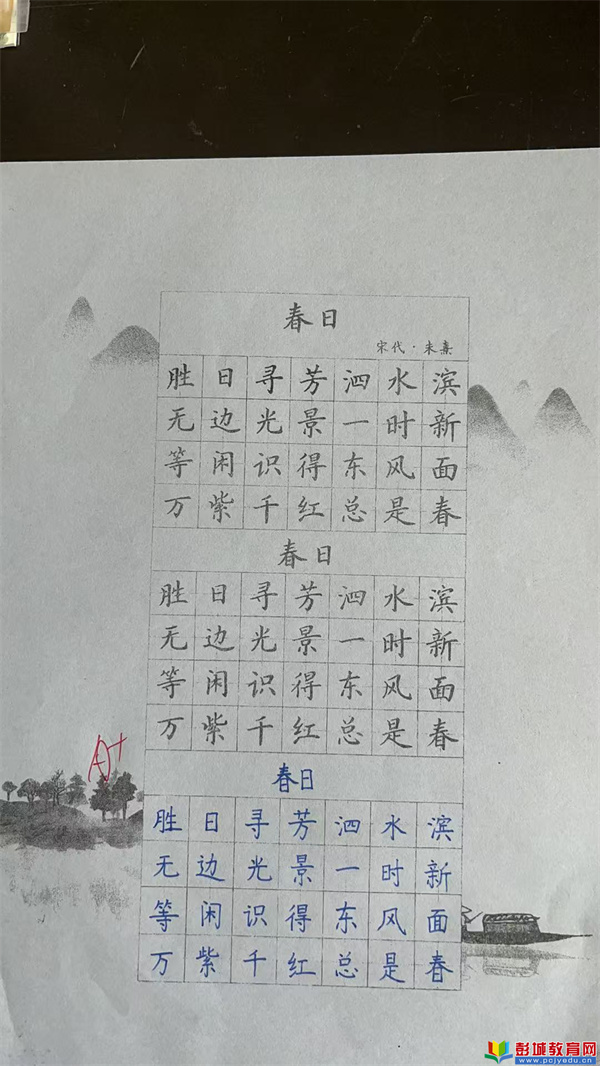 春日
宋代·朱熹
胜日寻芳泗水滨
无边光景一时新
等闲识得东风面
万紫千红总是春
春日
胜日寻芳泗水滨
无边光景一时新
等闲识得东风面
万紫千红总是春
A+
春日
胜日寻芳泗水滨
无边光景一时新
等闲识得东风面
万紫千红总是春
彭城教育网
www.pcjyedu.cn